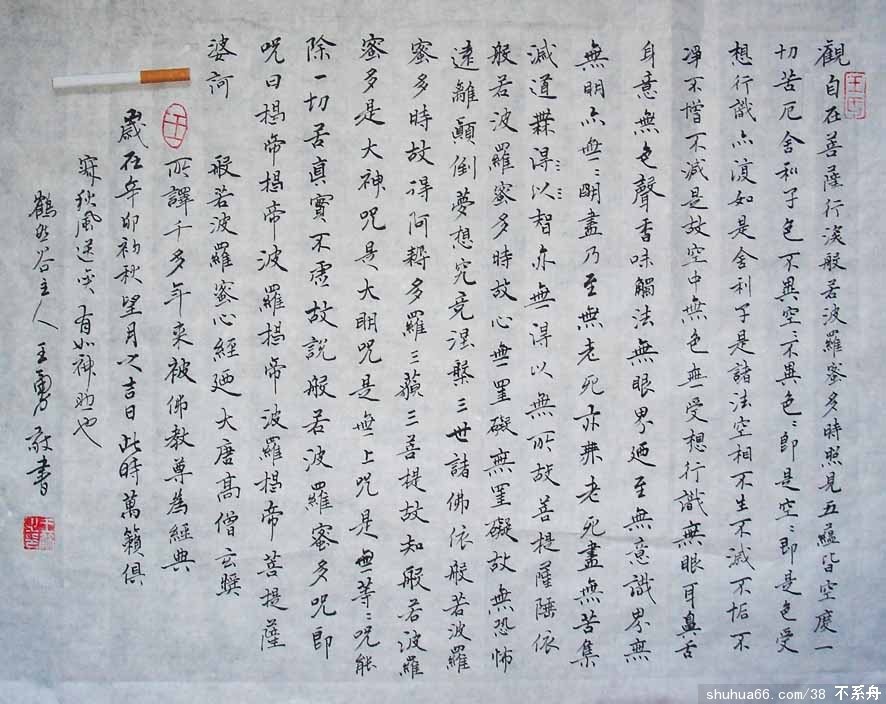 觀自在菩薩行深般若波羅蜜多時照見五蘊皆空度一
切苦厄舍利子色不異空〻不異色〻即是空〻即是色受
想行識亦復如是舍利子是諸法空相不生不滅不垢不
淨不增不減是故空中無色無受想行識無眼耳鼻舌
身意無色聲香味觸法無眼界廼至無意識界無
無明亦無〻明盡乃至無老死亦無老死盡無苦集
滅道無得以智亦無得以無所故菩提薩陲依
般若波羅蜜多時故心無罣礙無罣礙故無恐怖
遠離顛倒夢想究竟涅槃三世諸佛依般若波羅
蜜多時故得阿耨多羅三藐三菩提故知般若波羅
蜜多是大神咒是大明咒是無上咒是無等〻咒能
除一切苦真實不虛故說般若波羅蜜多咒即
咒曰揭帝揭帝波羅揭帝波羅揭帝菩提薩
婆訶 般若波羅蜜心經廼大唐高僧玄奘
所譯千多年来被佛教尊為經典
歲在辛卯初秋望月之吉日此時萬籟俱
寂秋風送爽有如神助也
鶴谷主人王勇敬書
shuhua66.com/38 不系舟